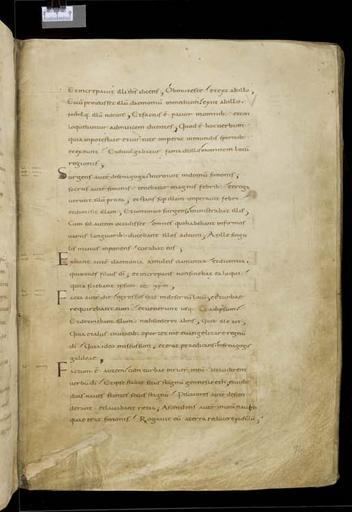 Et increpavit illũ ihs dicens, Obmutesce et exi ab illo,
Et cũ proiecisset illũ daemoniũ in mediũ exiit ab illo,
nihilq; illũ nocuit, Et factus ē pavor in omnib; et con
loquebantur ad invicem dicentes, Quod ē hoc verbum
quia in potestate et virtute imperat inmundis spiritib;
et exeunt, Et divulgabatur fama de illo in omnem locũ
regionis,
Surgens aut de synagoga introivit in domũ simonis,
socrus aut simonis tenebatur magnis febrib; et roga
verunt illũ pro ea, et stans sup illam imperavit febri
et dimisit illam, Et continuo surgens ministrabat illis,
Cum sol autem occidisset omnes qui habebant infirmos
variis languorib; ducebant illos ad eum, At ille singu
lis manus inponens curabat eos,
Exibant aut daemonia a multis clamantia et dicentia
quia tu es filius dī, et increpans non sinebat ea loqui
quia sciebant ipsum
Facta aut die egressus ibat in desertũ locũ, et turbae
requirebant eum et venerunt usq; ad ipsum
Et detinebant illum ne discederet ab eis, Quib; ille ait,
Quia et aliis civitatib; oportet me evangelizare regnũ
dī Quia ideo missus sum, et erat praedicans in synagogis
galileae,
Factum ē autem cum turbae inruerent in eũ ut audirent
verbũ dī Et ipse stabat secus stagnũ genesareth, et vidit
duas naves stantes secus stagnũ Piscatores aut descen
derant et lavabant retia, Ascendens aut in unã navẽ
quae erat simonis Rogavit eũ a terra reducere pusillũ,